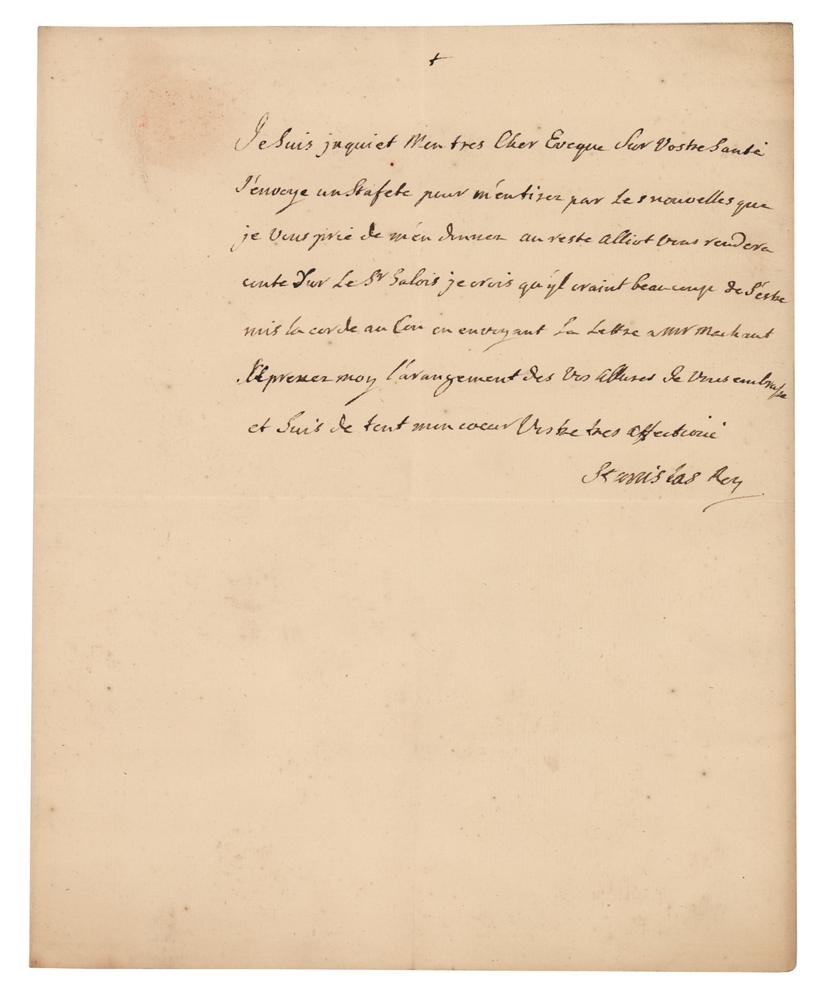 Je Suis jnquiet Mon tres Cher Eveque Sur Vostre Santé
J'envoye un Stafete pour m'entirer par Les nouvelles que
je Vous prie de m'en donner au reste Alliot Vous rendera
conte Sur Le Sr Salois je crois qu'yl craint beaucoup de S'estre
mis la corde au Cou en envoyant La Lettre a Mr Machaut
Aprenez moy l'arangement des Vos Allures Je Vous embrasse
et Suis de tout mon coeur Vostre tres affectioné
Stanisłas Roy